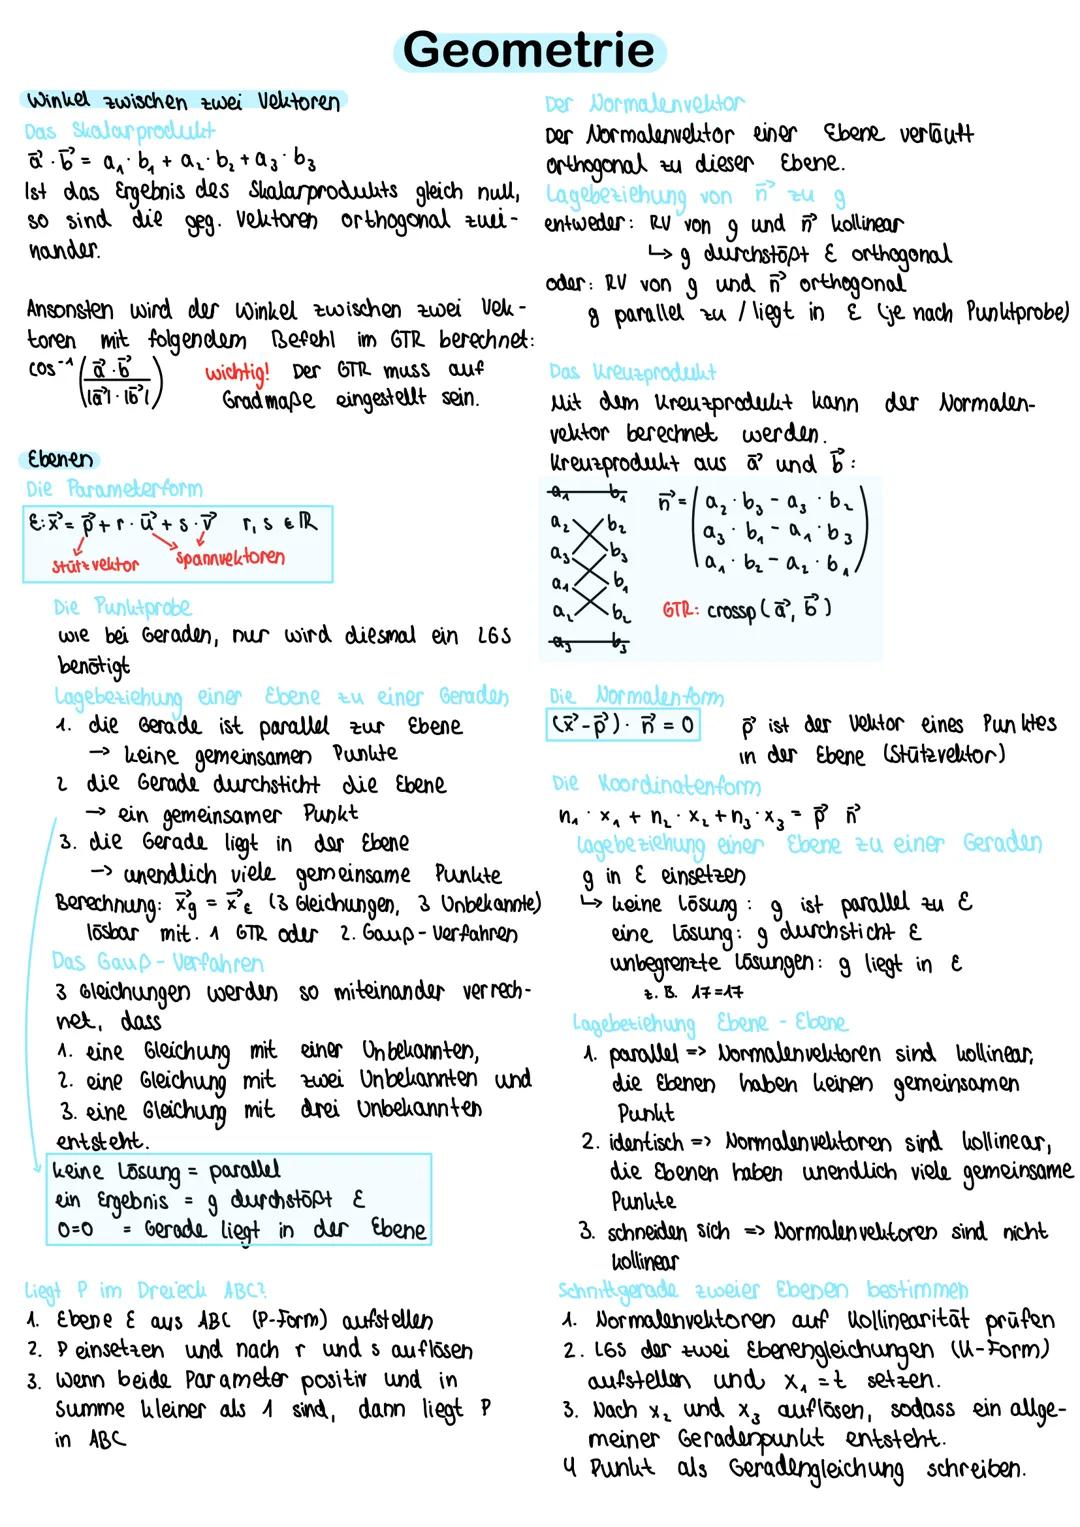 Geometrie
Winkel zwischen zwei Vektoren
Das Skalarprodukt
a⃗ · b⃗ = a₁ · b₁ + a₂ · b₂ + a₃ · b₃
Ist das Ergebnis des Skalarprodukts gleich null,
so sind die geg. Vektoren orthogonal zuei-
nander.
Ansonsten wird der Winkel zwischen zwei Vek-
toren mit folgendem Befehl im GTR berechnet:
cos⁻¹ ( a⃗ · b⃗ / |a⃗| · |b⃗| )
wichtig! Der GTR muss auf
Gradmaße eingestellt sein.
Ebenen
Die Parameterform
E: x⃗ = p⃗ + r · u⃗ + s · v⃗ r, s ∈ ℝ
Stützvektor Spannvektoren
Die Punktprobe
wie bei Geraden, nur wird diesmal ein LGS
benötigt
Lagebeziehung einer Ebene zu einer Geraden
1. die Gerade ist parallel zur Ebene
→ keine gemeinsamen Punkte
2 die Gerade durchsticht die Ebene
→ ein gemeinsamer Punkt
3. die Gerade liegt in der Ebene
→ unendlich viele gemeinsame Punkte
Berechnung: x⃗g = x⃗E (3 Gleichungen, 3 Unbekannte)
lösbar mit. 1 GTR oder 2. Gauß-Verfahren
Das Gauß-Verfahren
3 Gleichungen werden so miteinander verrech-
net, dass
1. eine Gleichung mit einer Unbekannten,
2. eine Gleichung mit zwei Unbekannten und
3. eine Gleichung mit drei Unbekannten
entsteht.
keine Lösung = parallel
ein Ergebnis = g durchstößt E
0=0 = Gerade liegt in der Ebene
Liegt P im Dreieck ABC?
1. Ebene E aus ABC (P-Form) aufstellen
2. P einsetzen und nach r und s auflösen
3. Wenn beide Parameter positiv und in
Summe kleiner als 1 sind, dann liegt P
in ABC
Der Normalenvektor
Der Normalenvektor einer Ebene verläuft
orthogonal zu dieser Ebene.
Lagebeziehung von n⃗ zu g
entweder: RV von g und n⃗ kollinear
↳ g durchstößt E orthogonal
oder: RV von g und n⃗ orthogonal
g parallel zu / liegt in E (je nach Punktprobe)
Das Kreuzprodukt
Mit dem Kreuzprodukt kann der Normalen-
vektor berechnet werden.
Kreuzprodukt aus a⃗ und b⃗:
a₁ b₁
a₂ b₂
a₃ b₃
a₁ b₁
a₂ b₂
a₃ b₃
n⃗ = ( a₂ · b₃ - a₃ · b₂
a₃ · b₁ - a₁ · b₃
a₁ · b₂ - a₂ · b₁ )
GTR: crossp (a⃗, b⃗)
Die Normalenform
(x⃗ - p⃗) · n⃗ = 0
p⃗ ist der Vektor eines Punktes
in der Ebene (Stützvektor)
Die Koordinatenform
n₁ · x₁ + n₂ · x₂ + n₃ · x₃ = p⃗ n⃗
Lagebeziehung einer Ebene zu einer Geraden
g in E einsetzen
↳ keine Lösung: g ist parallel zu E
eine Lösung: g durchsticht E
unbegrenzte Lösungen: g liegt in E
z. B. 17=17
Lagebeziehung Ebene - Ebene
1. parallel => Normalenvektoren sind kollinear,
die Ebenen haben keinen gemeinsamen
Punkt
2. identisch => Normalenvektoren sind kollinear,
die Ebenen haben unendlich viele gemeinsame
Punkte
3. schneiden sich => Normalenvektoren sind nicht
kollinear
Schnittgerade zweier Ebenen bestimmen
1. Normalenvektoren auf Kollinearität prüfen
2. LGS der zwei Ebenengleichungen (K-Form)
aufstellen und x₁ = t setzen.
3. Nach x₂ und x₃ auflösen, sodass ein allge-
meiner Geradenpunkt entsteht.
4 Punkt als Geradengleichung schreiben.